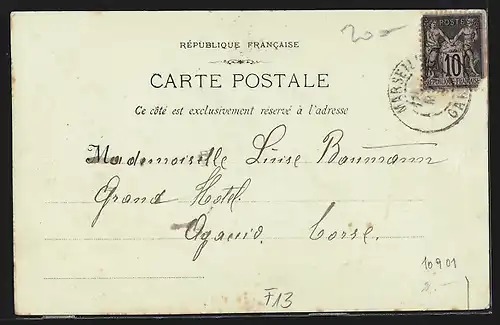 200
RÉPUBLIQUE FRANÇAISE
POSTE
10
CARTE POSTALE
MARSEILLE
GARE
Ce côté est exclusivement réservé à l'adresse
Mademoiselle Luise Baumann
Grand Hotel
Ajaccio. Corse.
10.9.01
2.-
F13